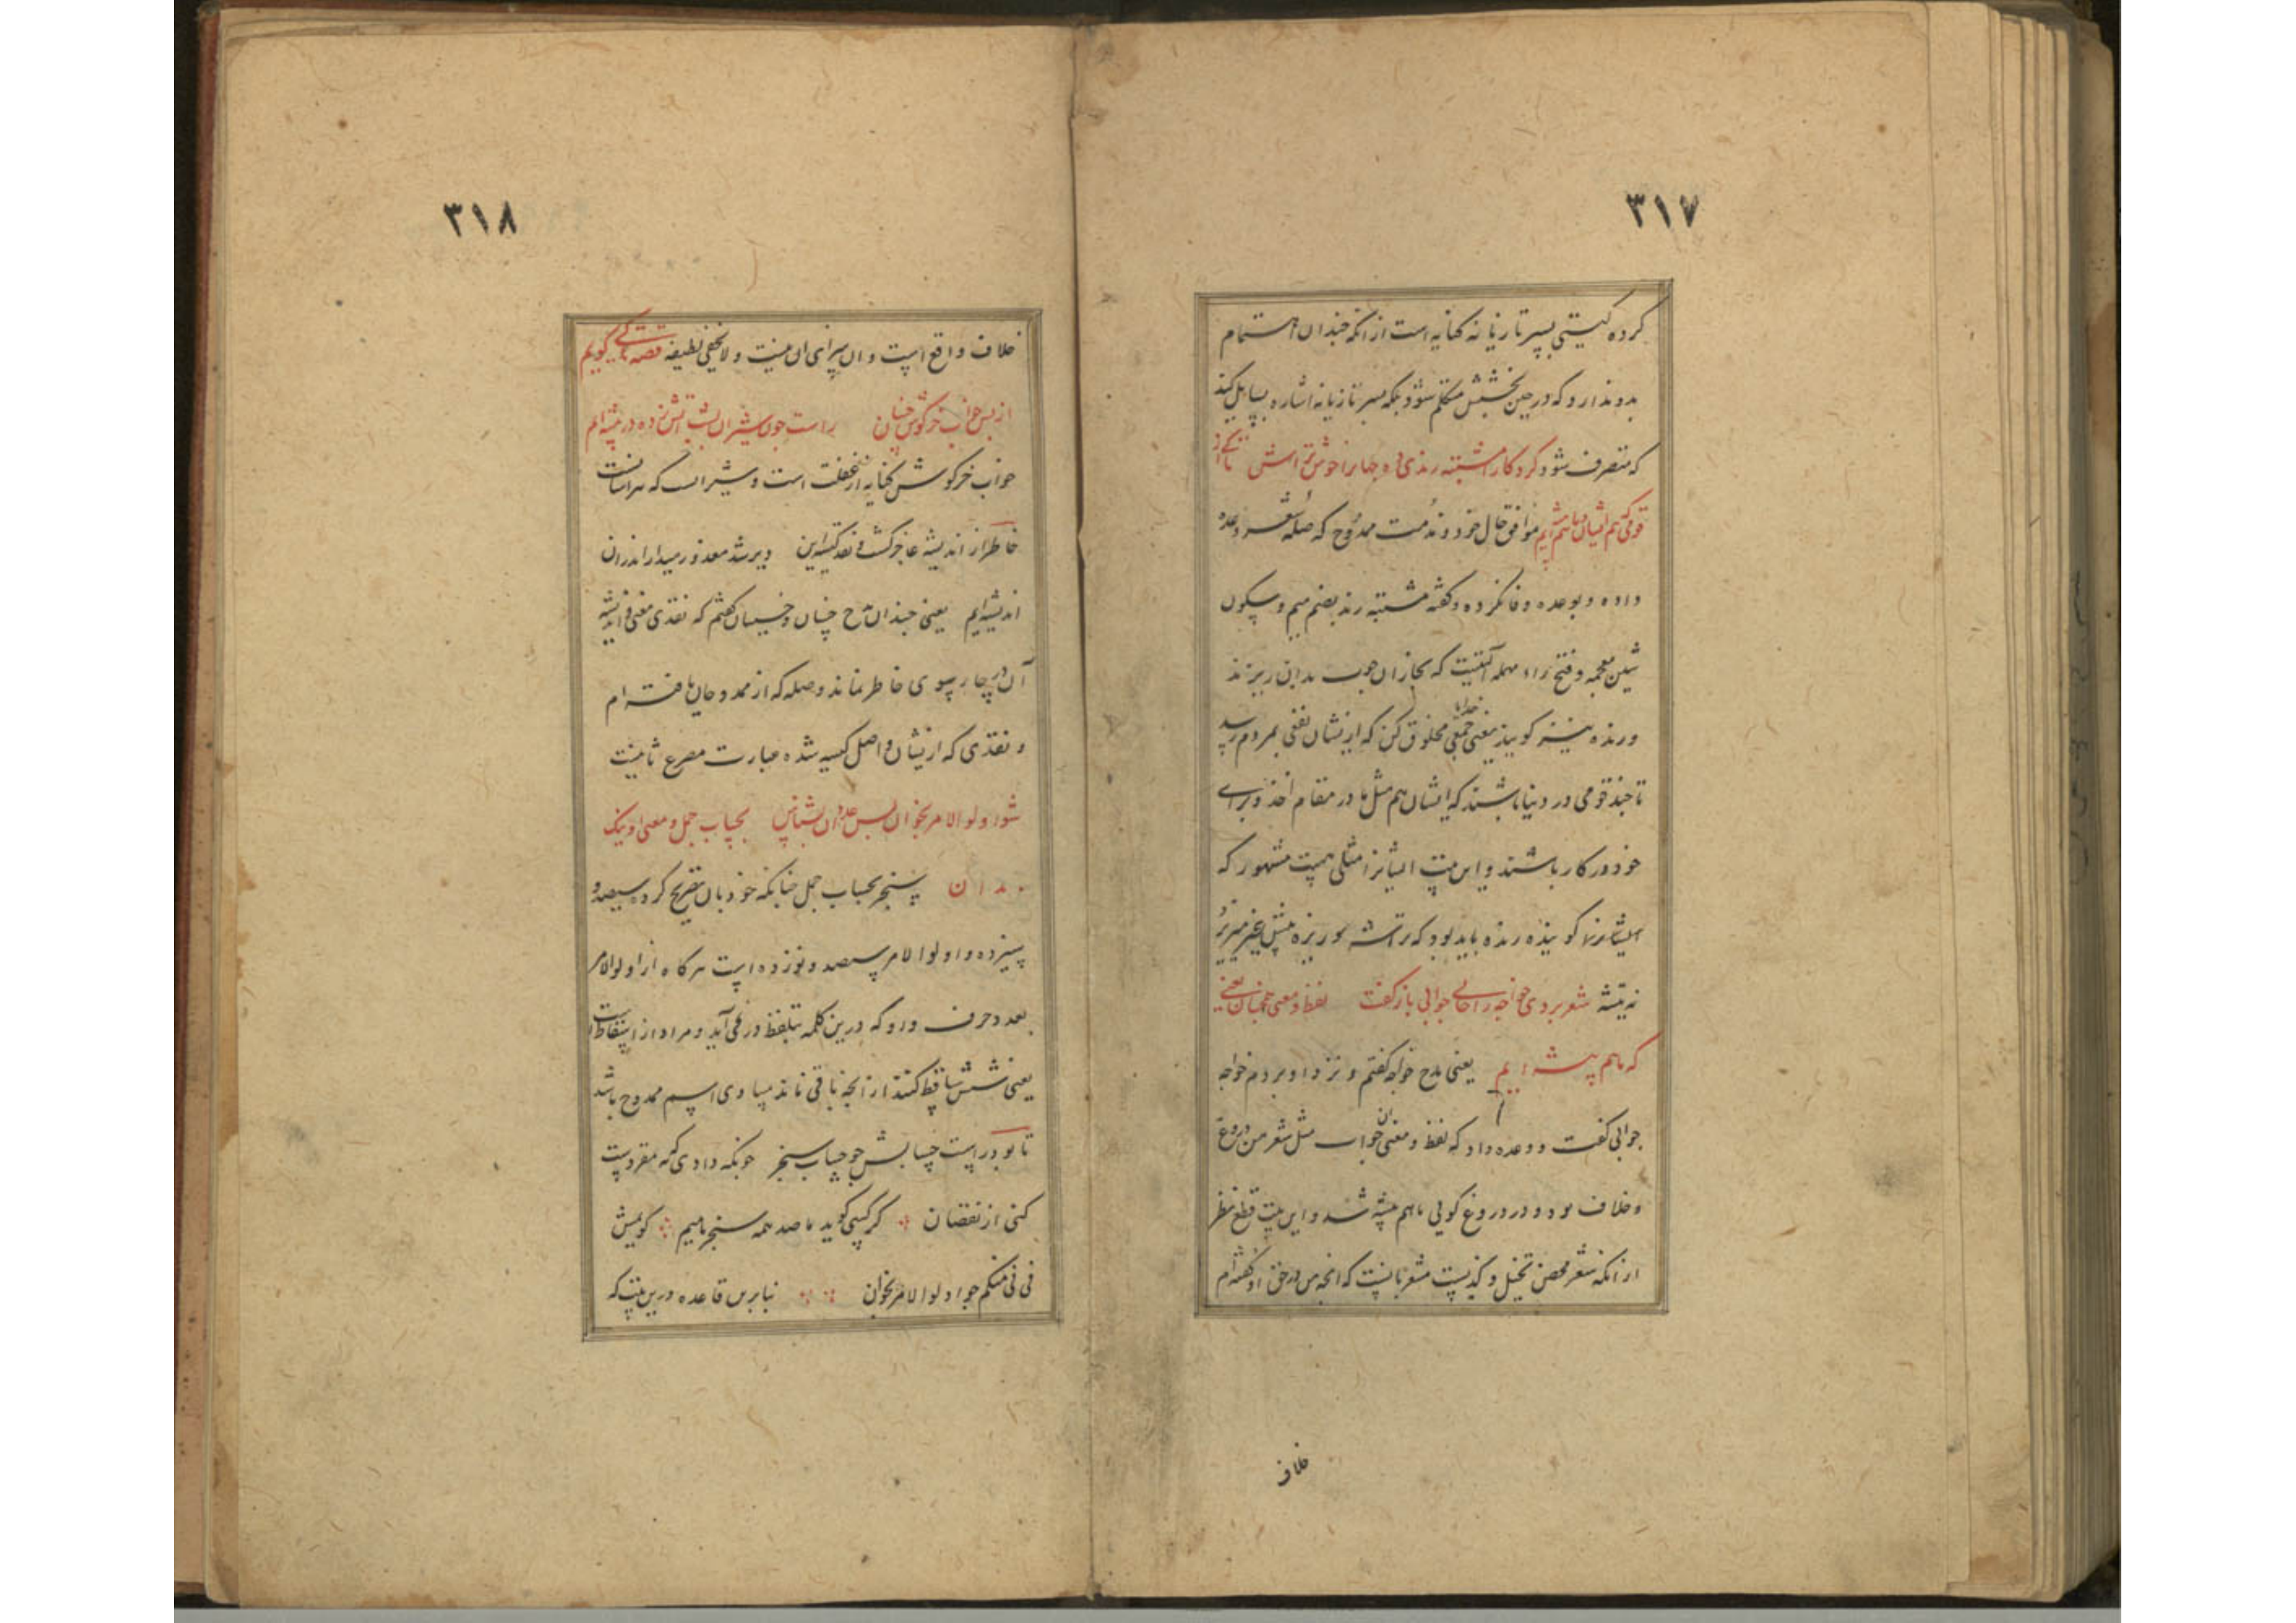 ۳۱۷
کرده کیتی بسر تازیانه کنایه است از آنکه چندان اهتمام
بدو ندارد که در حین بخشش متکلم شود بلکه بسر تازیانه اشاره بسایل کند
که متصرف شود کردکارا مشتبه رندی ده جهانرا خوش تراش تا کی از
قومی که هم ایشان و ما هم ایم موافق حال خود و مذمت ممدوح که صله شعر وعده
داده و بوعده وفا نکرده و کفته مشتبه رند بضم میم و سکون
شین معجمه و فتح راء مهمله آلتیست که نجاران چوب بدان ریزند
ورنده نیز کویند یعنی خدایا جمعی مخلوق کن که ازیشان نفعی بمردم رسد
تا چند قومی در دنیا باشند که ایشان هم مثل ما در مقام اخذ و برای
خود در کار باشند و این بیت ایشانرا مثلی هست مشهور که
ایشانرا کویند رنده باید بود که تراشه
نه تیشه شعر بردی خواجه را حالی جوابی باز کفت لفظ و معنی همچنان یعنی
که ما هم پیشه ایم یعنی مدح خواجه کفتم و نزد او بردم خواجه
جوابی کفت و وعده داد که لفظ و معنی آن جواب مثل شعر من دروغ
و خلاف بود و در دروغ کویی با هم پیشه شد و این بیت قطع نظر
از آنکه شعر محض تخیل و کذبست مشعر بآنست که آنچه من در حق او کفته ام
خلاف
۳۱۸
خلاف واقع است و او سزای آن نیست و لا یخفی لطیفه قصه تا کی کویم
از بس خواب خرکوش چنان راست چون شیران شب آتش زده در بیشه ایم
خواب خرکوش کنایه از غفلت است و شیر است که هراسانست
خاطر از اندیشه عاجز کشت و نقد کیسه این دیر شد معذور میدار اندران
اندیشه ایم یعنی چندان مدح چنان و خسیسان کفتم که نقدی معنی و اندیشه
آن در چارسوی خاطر نماند و صله که از ممدوحان یافته ام
و نقدی که ازیشان واصل کیسه شده عبارت مصرع ثانیست
شو اولوا الامر بخوان پس عدد آن بشناس بحساب جمل و معنی او نیک
بدان سنجر بحساب جمل چنانکه خود بآن تصریح کرده سیصد و
سیزده و اولوا الامر سیصد و نوزده است هر کاه از اولوا الامر
بعدد حرف و رو که درین کلمه بتلفظ در نمی آید و مراد از اسقاطست
یعنی شش ساقط کنند از آنچه باقی ماند مساوی اسم ممدوح باشد
تا بود راست حسابش چو حساب سنجر چونکه داوی که مقروست
کنی از نقصان کر کسی کوید ما صد همه سنجر ماییم کویمش
نی نی منکم چو اولوا الامر بخوان بنا برین قاعده درین بیت که